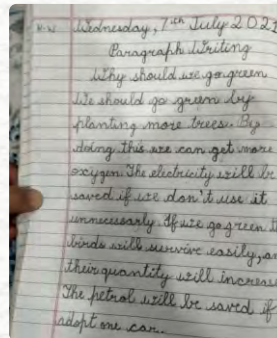 H.W Wednesday, 7th July 2021
Paragraph Writing
Why should we go green
We should go green by
planting more trees. By
doing this we can get more
oxygen. The electricity will be
saved if we don't use it
unnecessarly. If we go green t
birds will survive easily, an
their quantity will increase
The petrol will be saved if
adopt one car.